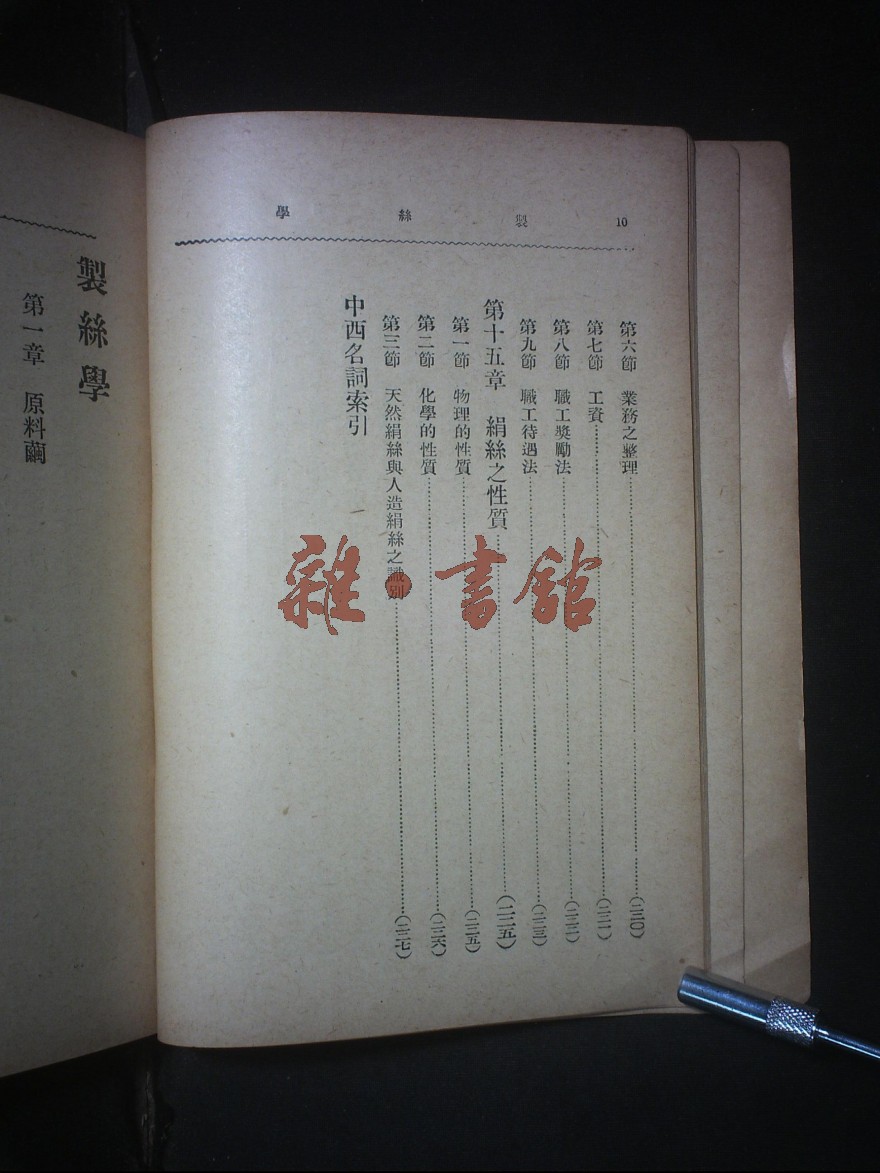 10 製絲學
第六節 業務之整理……(二二〇)
第七節 工資……(二二一)
第八節 職工獎勵法……(二二二)
第九節 職工待遇法……(二二三)
第十五章 絹絲之性質……(二二五)
第一節 物理的性質……(二二五)
第二節 化學的性質……(二二六)
第三節 天然絹絲與人造絹絲之識別……(二二七)
中西名詞索引
製絲學
第一章 原料繭
雜·書館